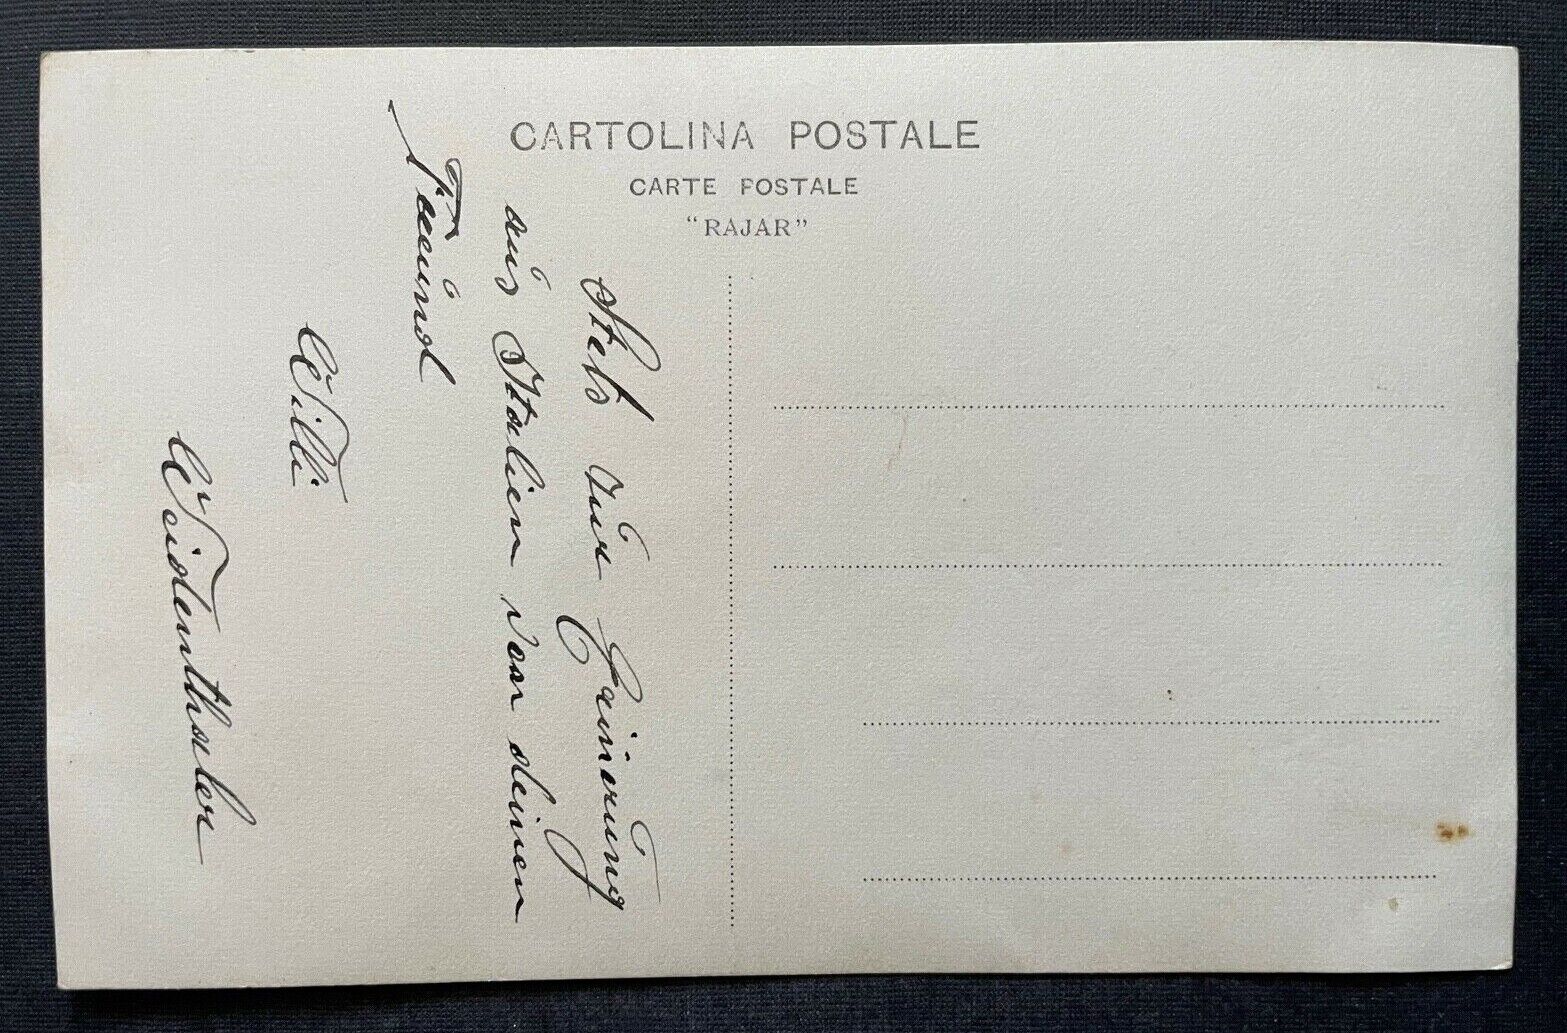 CARTOLINA POSTALE
CARTE POSTALE
"RAJAR"
Stets zur Erinerung
aus Italien von deinen
Freund
Willi
Weidenthaler